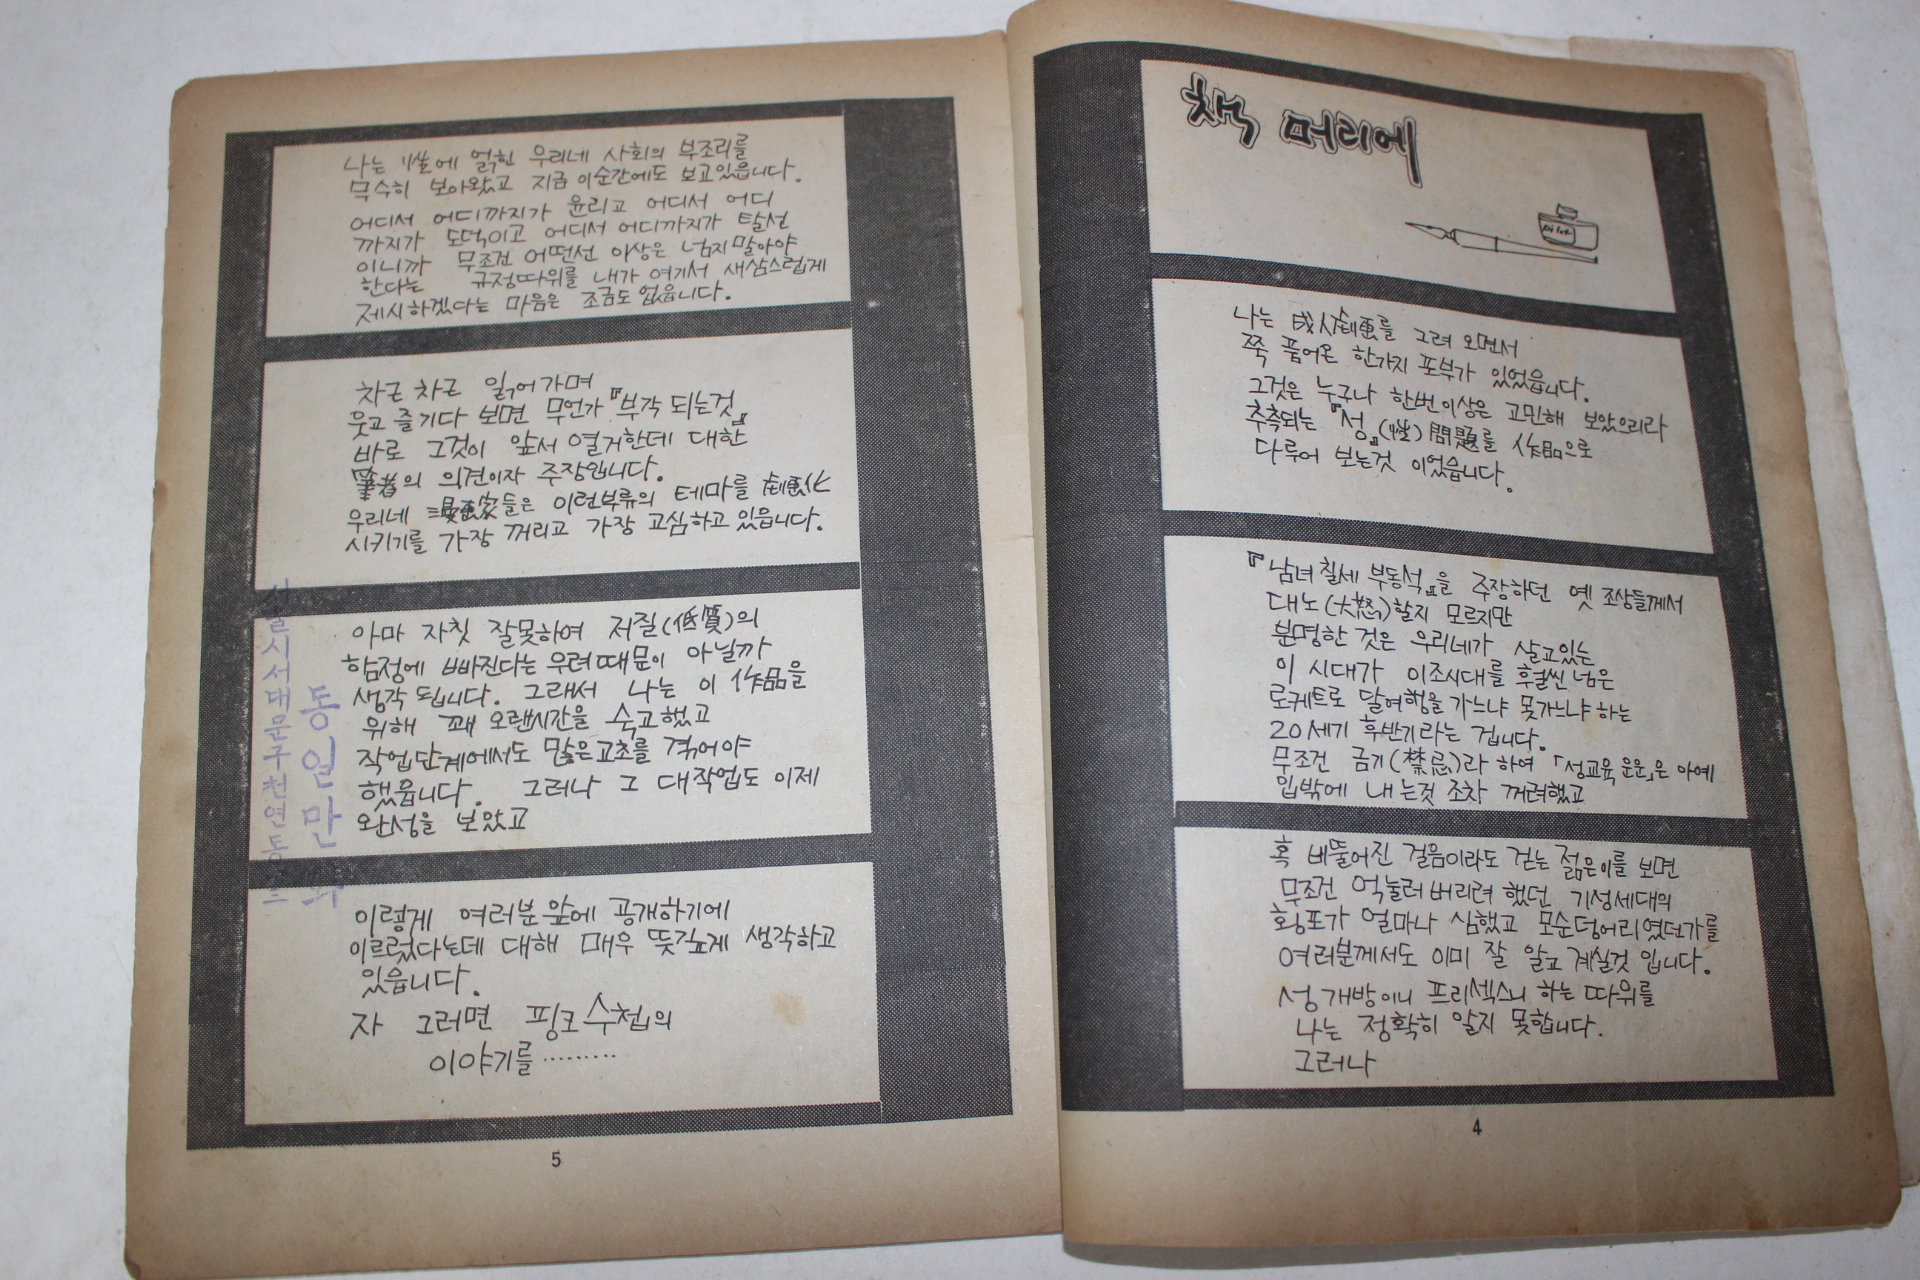 책 머리에
Pilot
나는 成人劇画를 그려 오면서
쭉 품어온 한가지 포부가 있었읍니다.
그것은 누구나 한번이상은 고민해 보았으리라
추측되는 『성』(性) 問題를 作品으로
다루어 보는것 이었읍니다.
『남녀 칠세 부동석』을 주장하던 옛 조상들께서
대노(大怒)할지 모르지만
분명한 것은 우리네가 살고있는
이 시대가 이조시대를 훨씬 넘은
로케트로 달여행을 가느냐 못가느냐 하는
20세기 후반기라는 겁니다.
무조건 금기(禁忌)라 하여 「성교육 운운」은 아예
입밖에 내는것 조차 꺼려했고
혹 비뚤어진 걸음이라도 걷는 젊은이를 보면
무조건 억눌러버리려 했던 기성세대의
횡포가 얼마나 심했고 모순덩어리였던가를
여러분께서도 이미 잘 알고 계실것 입니다.
성개방이니 프리섹스니 하는 따위를
나는 정확히 알지 못합니다.
그러나
4
나는 性에 얽힌 우리네 사회의 부조리를
무수히 보아왔고 지금 이순간에도 보고있읍니다.
어디서 어디까지가 윤리고 어디서 어디
까지가 도덕이고 어디서 어디까지가 탈선
이니까 무조건 어떤선 이상은 넘지말아야
한다는 규정따위를 내가 여기서 새삼스럽게
제시하겠다는 마음은 조금도 없읍니다.
차근 차근 읽어가며
웃고 즐기다 보면 무언가 『부각 되는것』
바로 그것이 앞서 열거한데 대한
筆者의 의견이자 주장입니다.
우리네 漫画家들은 이런부류의 테마를 劇画化
시키기를 가장 꺼리고 가장 고심하고 있읍니다.
아마 자칫 잘못하여 저질(低質)의
함정에 빠진다는 우려때문이 아닐까
생각 됩니다. 그래서 나는 이 作品을
위해 꽤 오랜시간을 숙고했고
작업단계에서도 많은고초를 겪어야
했읍니다. 그러나 그 대작업도 이제
완성을 보았고
이렇게 여러분앞에 공개하기에
이르렀다는데 대해 매우 뜻깊게 생각하고
있읍니다.
자 그러면 핑크수첩의
이야기를·········
5
동일만화
서울시서대문구천연동